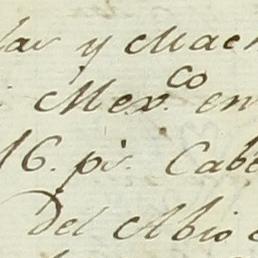 lar y Mach
Mex.co en
16. ps. Cabe
Del Abio